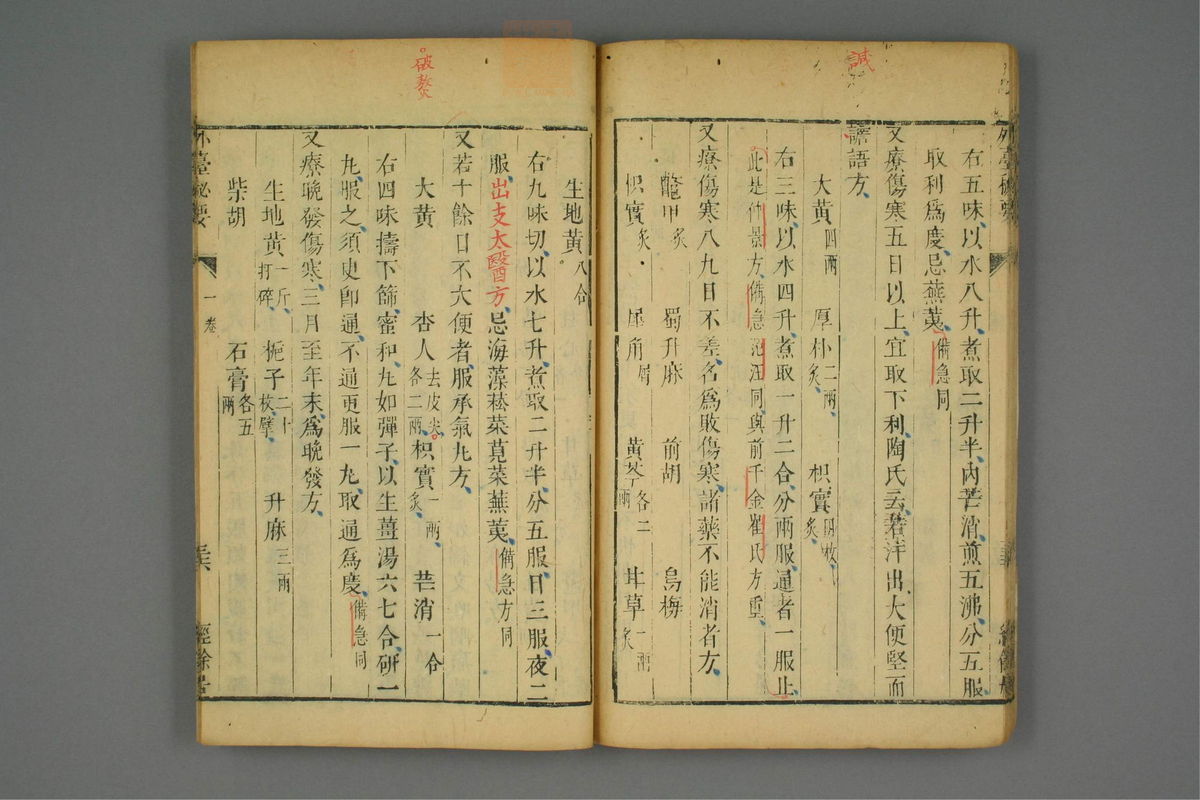 誠
右五味以水八升煮取二升半內芒消煎五沸分五服
取利爲度忌蕪荑備急同
又療傷寒五日以上宜取下利陶氏云若汗出大便堅而
譫語方
大黃四兩 厚朴二兩炙 枳實四枚炙
右三味以水四升煮取一升二合分兩服通者一服止
此是仲景方備急范汪同與前千金崔氏方重
又療傷寒八九日不差名爲敗傷寒諸藥不能消者方
鼈甲炙 蜀升麻 前胡 烏梅
枳實炙 犀角屑 黃芩各二兩 甘草一兩炙
破 熬
生地黃八合
右九味切以水七升煮取二升半分五服日三服夜二
服出支太醫方忌海藻菘菜莧菜蕪荑備急方同
又若十餘日不大便者服承氣丸方
大黃 杏人去皮尖各二兩 枳實一兩炙 芒消一合
右四味擣下篩蜜和丸如彈子以生薑湯六七合研一
丸服之須臾卽通不通更服一丸取通爲度備急同
又療晚發傷寒三月至年末爲晚發方
生地黃一斤打碎 梔子二十枚擘 升麻三兩
柴胡 石膏各五兩
外臺秘要 一卷 經餘居